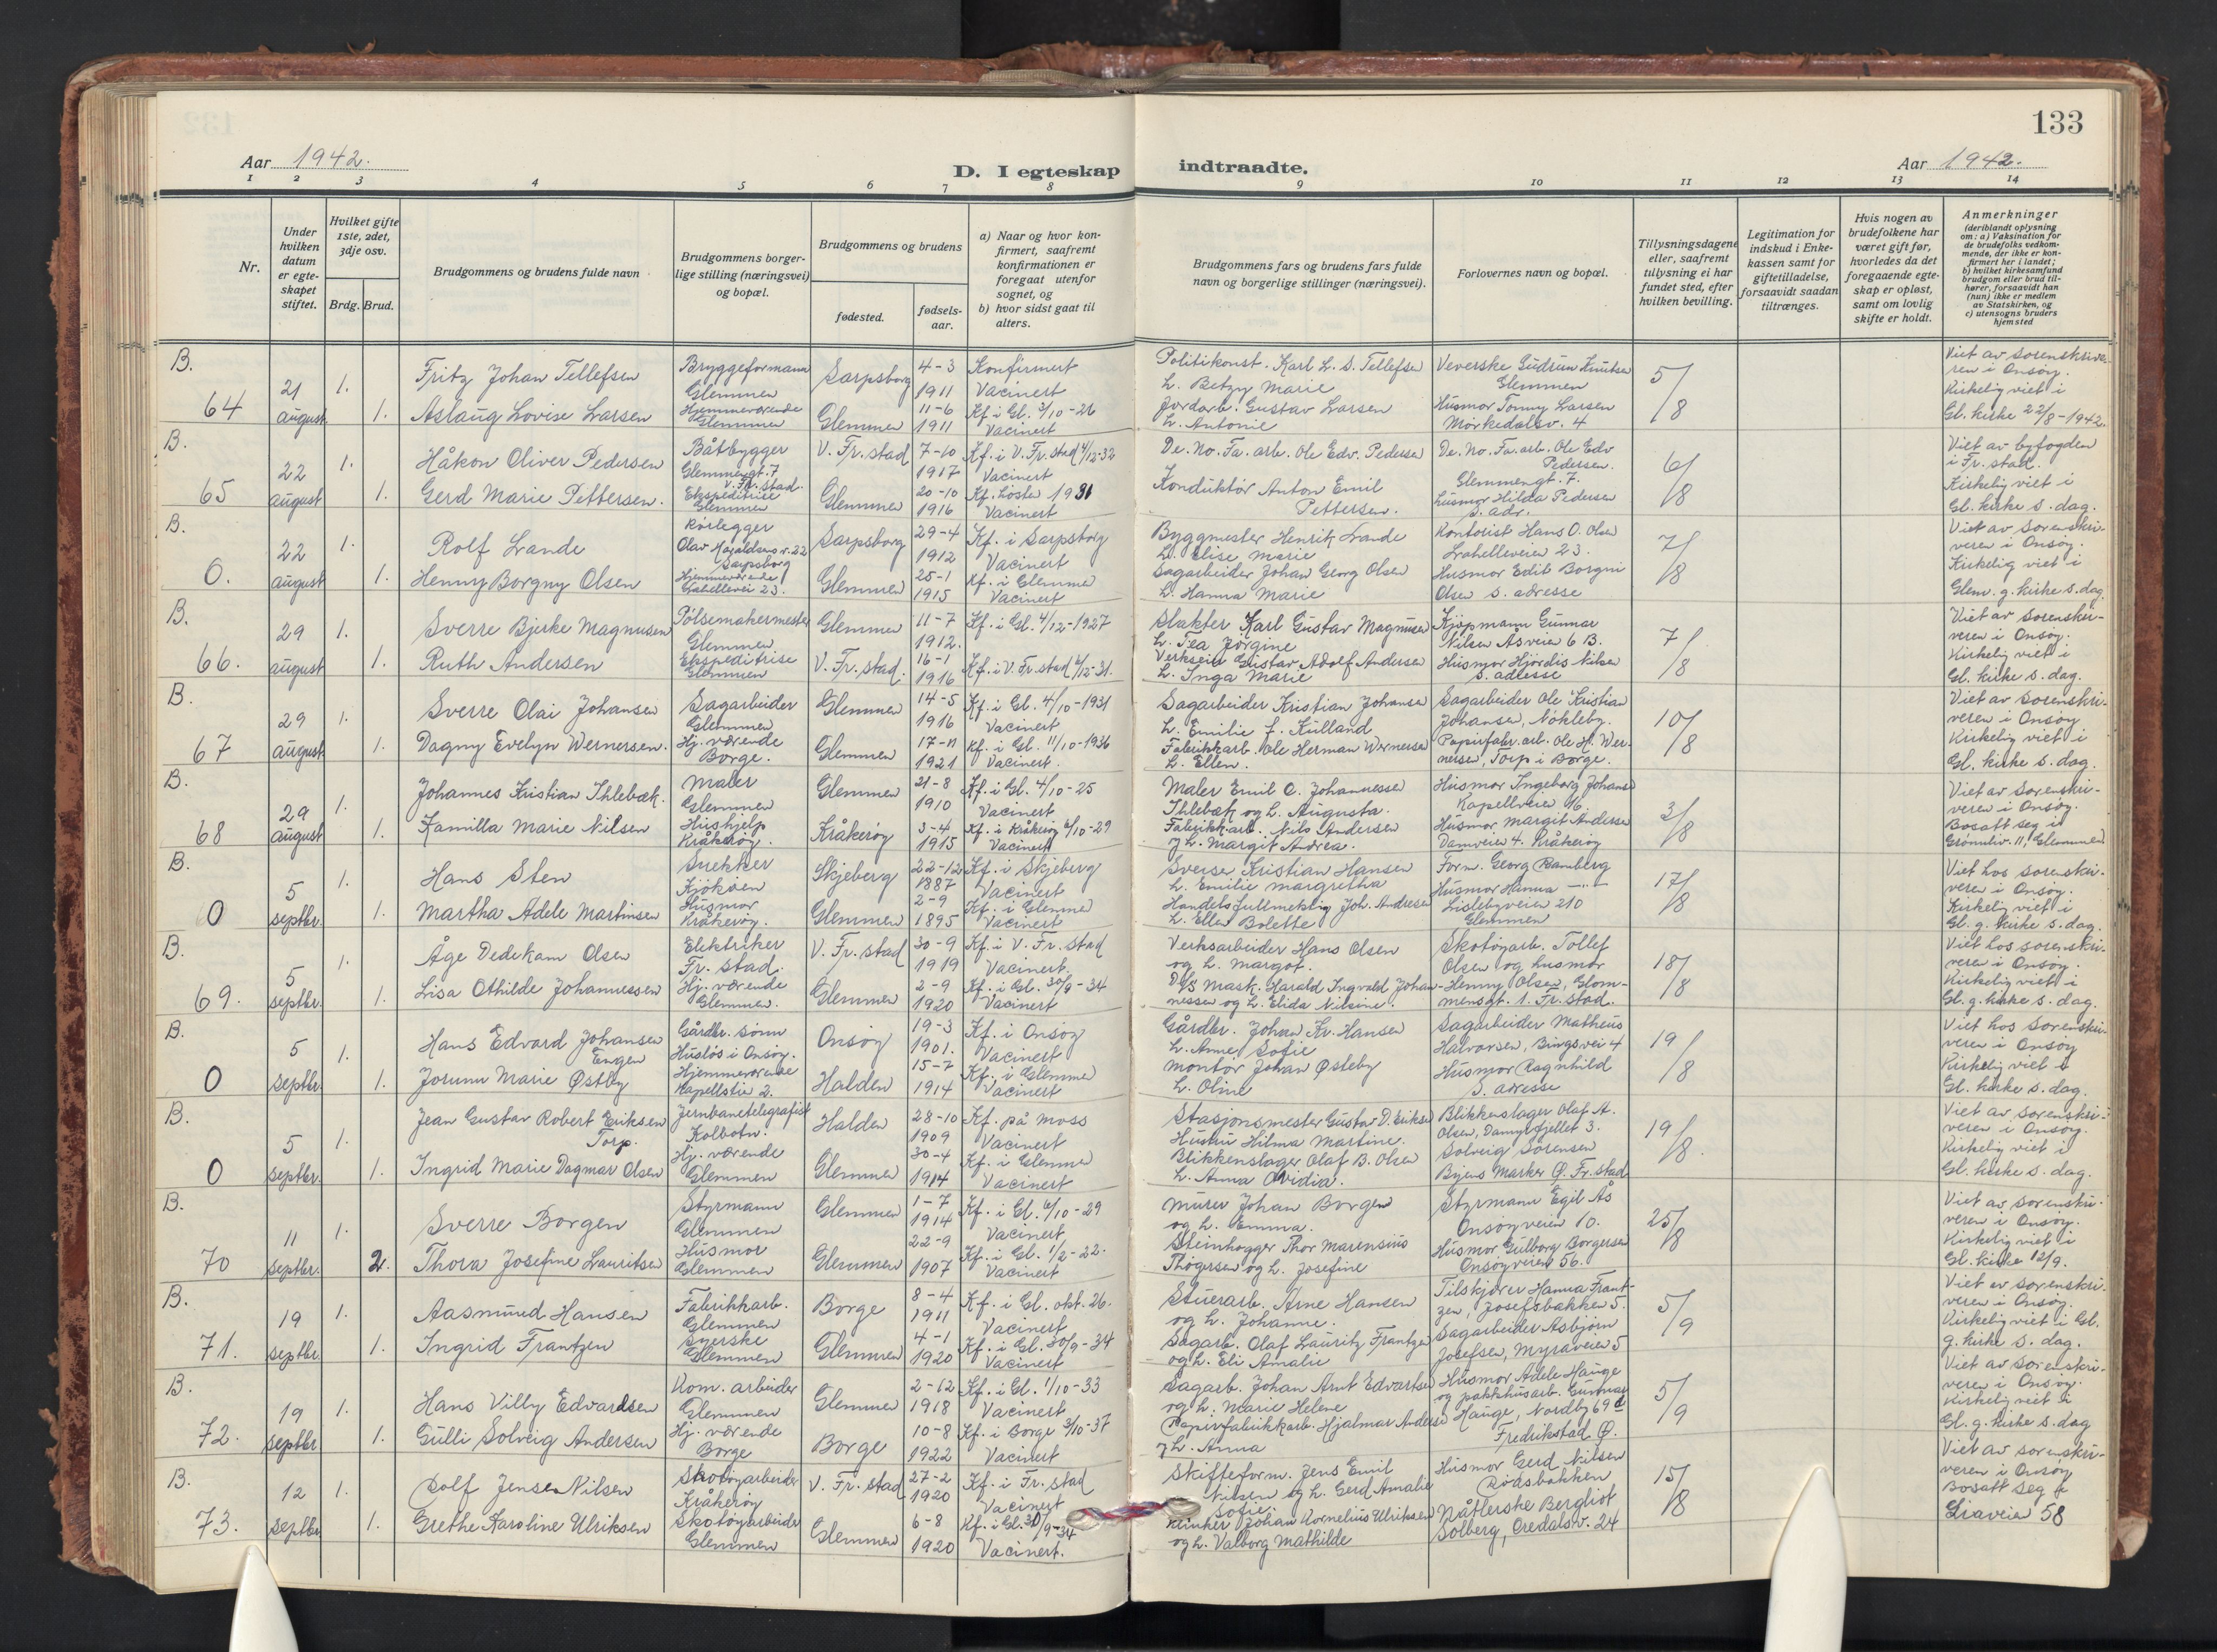 133
Aar 1942.
D. I egteskap indtraadte.
Aar 1942.
1 2 3 4 5 6 7 8 9 10 11 12 13 14
Nr.
Under hvilken datum er egteskapet stiftet.
Hvilket gifte 1ste, 2det, 3dje osv.
Brdg. Brud.
Brudgommens og brudens fulde navn
Brudgommens borgerlige stilling (næringsvei) og bopæl.
Brudgommens og brudens
fødested.
fødselsaar.
a) Naar og hvor konfirmert, saafremt konfirmationen er foregaat utenfor sognet, og
b) hvor sidst gaat til alters.
Brudgommens fars og brudens fars fulde navn og borgerlige stillinger (næringsvei).
Forlovernes navn og bopæl.
Tillysningsdagene eller, saafremt tillysning ei har fundet sted, efter hvilken bevilling.
Legitimation for indskud i Enkekassen samt for giftetilladelse, forsaavidt saadan tiltrænges.
Hvis nogen av brudefolkene har været gift før, hvorledes da det foregaaende egteskap er opløst, samt om lovlig skifte er holdt.
Anmerkninger (deriblandt oplysning om: a) Vaksination for de brudefolks vedkommende, der ikke er konfirmert her i landet; b) hvilket kirkesamfund brudgom eller brud tilhører, forsaavidt han (hun) ikke er medlem av Statskirken, og c) utensogns bruders hjemsted
B. 64 21 august 1. 1.
Fritz Johan Tellefsen Bryggeformann Glemmen Sarpsborg 4-3 1911 Konfirmert Vacinert
Aslaug Lovise Larsen Hjemmeværende Glemmen Glemmen 11-6 1911 Kf. i Gl. 3/10-26 Vacinert
Politikonst. Karl L. S. Tellefsen h. Betzy Marie
Jordarb. Gustav Larsen h. Antonie
Veverske Gudrun Knutsen Glemmen
Husmor Tonny Larsen Mørkedalsv. 4
5/8
Viet av sorenskriveren i Onsøy. Kirkelig viet i Gl. kirke 22/8-1942.
B. 65 22 august 1. 1.
Håkon Oliver Pedersen Båtbygger Glemmengt. 7 V. Fr.stad. V. Fr. stad 7-10 1917 Kf. i V. Fr. stad 4/12-32 Vacinert
Gerd Marie Pettersen. Ekspeditrise Glemmen Glemmen 20-10 1916 Kf. høsten 1931 Vacinert
De. No. Fa. arb. Ole Edv. Pedersen
Konduktør Anton Emil Pettersen.
De. No. Fa. arb. Ole Edv Pedersen. Glemmengt. 7.
Husmor Hilda Pedersen s. adr.
6/8
Viet av byfogden i Fr. stad. Kirkelig viet i Gl. kirke s. dag.
B. 0. 22 august 1. 1.
Rolf Lande Rørlegger Olav Haraldsens v. 22 Sarpsborg Sarpsborg 29-4 1912 Kf. i Sarpsborg Vacinert
Henny Borgny Olsen Hjemmeværende Trahellevei 23. Glemmen 25-1 1915 Kf. i Glemmen Vacinert
Byggmester Henrik Lande h. Elise Marie
Sagarbeider Johan Georg Olsen h. Hanna Marie
Kontorist Hans O. Olsen Trahelleveien 23.
Husmor Edit Borgni Olsen s. adresse
7/8
Viet av sorenskriveren i Onsøy. Kirkelig viet i Glem. g. kirke s. dag.
B. 66. 29 august 1. 1.
Sverre Bjerke Magnusen Pølsemakermester Glemmen Glemmen 11-7 1912. Kf. i Gl. 4/12-1927
Ruth Andersen Ekspeditrise Glemmen V. Fr. stad. 16-1 1916 Kf. i V. Fr. stad 6/12-31.
Slakter Karl Gustav Magnusen h. Tea Jørgine
Verkseier Gustav Adolf Andersen h. Inga Marie
Kjøpmann Gunnar Nilsen Åsveien 6 B.
Husmor Hjørdis Nilsen s. adresse
7/8
Viet av sorenskriveren i Onsøy. Kirkelig viet i Gl. kirke s. dag.
B. 67 29 august 1. 1.
Sverre Olai Johansen Sagarbeider Glemmen Glemmen 14-5 1916 Kf. i Gl. 4/10-1931 Vacinert
Dagny Evelyn Wernersen. Hj. værende Borge. Glemmen 17-11 1921 Kf. i Gl. 11/10-1936 Vacinert.
Sagarbeider Kristian Johansen h. Emilie f. Kulland
Fabrikkarb. Ole Herman Wernersen h. Ellen.
Sagarbeider Ole Kristian Johansen, Nøkleby.
Papirfabr. arb. Ole H. Wernersen, Torp i Borge.
10/8
Viet av sorenskriveren i Onsøy. Kirkelig viet i Gl. kirke s. dag.
B. 68 29 august 1. 1.
Johannes Kristian Ihlebæk. Maler Glemmen Glemmen 21-8 1910 Kf. i Gl. 4/10-25 Vacinert
Kamilla Marie Nilsen Hushjelp Kråkerøy. Kråkerøy 3-4 1915 Kf. i Kråkerøy 6/10-29 Vacinert
Maler Emil O. Johannessen Ihlebæk og h. Augusta.
Fabrikkarb. Nils Andersen og h. Margit Andrea.
Husmor Ingeborg Johansen Kapellveien 16.
Husmor Margit Andersen Damveien 4. Kråkerøy
3/8
Viet av sorenskriveren i Onsøy. Bosatt seg i Grønliv. 11, Glemmen
B. 0 5 septbr. 1. 1.
Hans Sten Snekker Kjøkøen Skjeberg 22-12 1887 Kf. i Skjeberg Vacinert
Martha Adele Martinsen Husmor Kråkerøy. Glemmen 2-9 1895 Kf. i Glemmen Vacinert
Kristian Hansen h. Emilie Margretha
Handelsfullmektig Joh. Andresen h. Ellen Bolette
Form. Georg Ramberg
Husmor Hanna —"— Lislebyveien 210 Glemmen
17/8
Viet hos sorenskriveren i Onsøy. Kirkelig viet i Gl. g. kirke s. dag.
B. 69. 5 septbr. 1. 1.
Åge Dedekam Olsen Elektriker Fr. stad. V. Fr. stad 30-9 1919 Kf. i V. Fr. stad Vacinert.
Lisa Othilde Johannessen Hj. værende Glemmen. Glemmen 2-9 1920 Kf. i Gl. 30/9-34 Vacinert
Verksarbeider Hans Olsen og h. Margot.
D/S Mask. Harald Ingvald Johannessen og h. Elida Nilsine.
Skotøyarb. Tollef Olsen og husmor Henny Olsen, Glommensgt. 1. Fr. stad.
18/8
Viet hos sorenskriveren i Onsøy. Kirkelig viet i Gl. g. kirke s. dag.
B. 0 5 septbr. 1. 1.
Hans Edvard Johansen Engen Gårdbr. sønn Husløs i Onsøy. Onsøy 19-3 1901. Kf. i Onsøy Vacinert
Jorunn Marie Østby Hjemmeværende Kapellstien 2. Halden 15-7 1914 Kf. i Glemmen Vacinert
Gårdbr. Johan Kr. Hansen h. Anne Sofie
Montør Johan Østeby h. Oline
Sagarbeider Matheus Halvorsen, Bingsvei 4
Husmor Ragnhild s. adresse
19/8
Viet hos sorenskriveren i Onsøy Kirkelig viet i Gl. kirke s. dag.
B. 0 5 septbr. 1. 1.
Jean Gustav Robert Eriksen Torp. Jernbanetelegrafist Kolbotn. Halden 28-10 1909 Kf. på Moss Vacinert
Ingrid Marie Dagmar Olsen Hj. værende Glemmen Glemmen 30-4 1914 Kf. i Glemmen Vacinert
Stasjonsmester Gustav D. Eriksen Hustru Hilma Martine.
Blikkenslager Olaf B. Olsen h. Anna Ovidia.
Blikkenslager Olaf A. Olsen, Damyrfjellet 3.
Solveig Sørensen Byens Marker Ø. Fr. stad
19/8.
Viet av sorenskriveren i Onsøy. Kirkelig viet i Gl. kirke s. dag.
B. 70 11 septbr. 1. 2.
Sverre Borgen Styrmann Glemmen Glemmen 1-7 1914 Kf. i Gl. 6/10-29 Vacinert
Thora Josefine Lauritsen Husmor Glemmen Glemmen 22-9 1907 Kf. i Gl. 1/2-22. Vacinert
Murer Johan Borgen og h. Emma.
Steinhogger Thor Marensius Thøgersen og h. Josefine
Styrmann Egil Ås Onsøyveien 10.
Husmor Gulborg Borgersen Onsøyveien 56.
25/8
Viet av sorenskriveren i Onsøy. Kirkelig viet i Gl. kirke 12/9.
B. 71. 19 septbr. 1. 1.
Aasmund Hansen Fabrikkarb. Glemmen Borge 8-4 1911 Kf. i Gl. okt. 26. Vacinert
Ingrid Frantzen Syerske Glemmen Glemmen 4-1 1920 Kf. i Gl. 30/9-34 Vacinert
Stuerarb. Arne Hansen og h. Johanne.
Sagarb. Olaf Lauritz Frantzen og h. Eli Amalie
Tilskjærer Hanna Frantzen, Josefsbakken 5.
Sagarbeider Asbjørn Josefsen, Myraveien 5
5/9
Viet av sorenskriveren i Onsøy. Kirkelig viet i Gl. g. kirke s. dag.
B. 72. 19 septbr 1. 1.
Hans Villy Edvardsen Kom. arbeider Glemmen Glemmen 2-12 1918 Kf. i Gl. 1/10-33 Vacinert
Gulli Solveig Andersen Hj. værende Borge Borge 10-8 1922 Kf. i Borge 3/10-37 Vacinert
Sagarb. Johan Arnt Edvartsen og h. Marie Helene
Papirfabrikkarb. Hjalmar Andersen og h. Anna
Husmor Adele Hauge og pakkhusarb. Gunnar Hauge, Nordby 69 d Fredrikstad Ø.
5/9
Viet av sorenskriveren i Onsøy. Kirkelig viet i Gl. g. kirke s. dag
B. 73. 12 septbr 1. 1.
Rolf Jensen Nilsen Skotøyarbeider Kråkerøy V. Fr. stad 27-2 1920 Kf. i Fr. stad Vacinert
Grethe Karoline Ulriksen Skotøyarbeider Glemmen Glemmen 6-8 1920 Kf. i Gl. 30/9-34 Vacinert.
Skifteform. Jens Emil Nilsen og h. Gerd Amalie Sofie
Klinker Johan Kornelius Ulriksen og h. Valborg Mathilde
Husmor Gerd Nilsen Rødsbakken
Nåtlerske Bergliot Solberg, Oredalsv. 24
15/8
Viet av sorenskriveren i Onsøy Bosatt seg i Liaveien 58